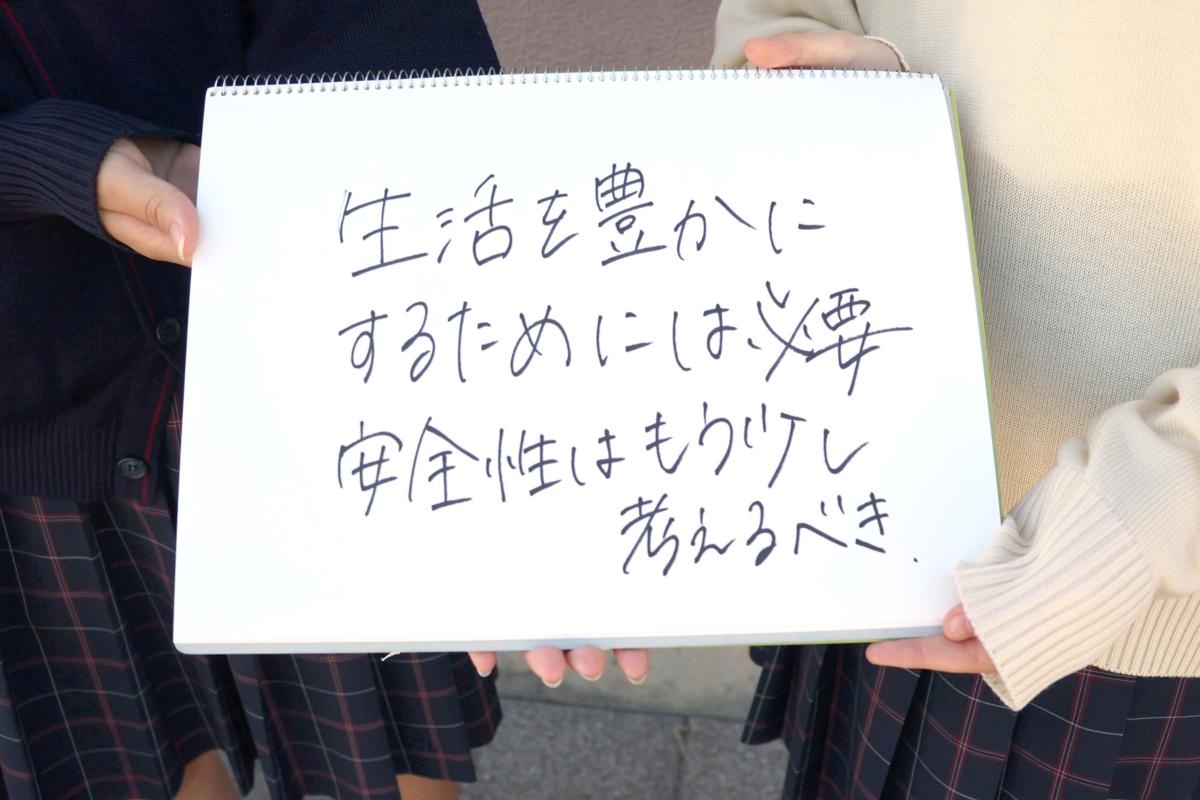 生活を豊かに
するためには必要
安全性はもう少し
考えるべき.